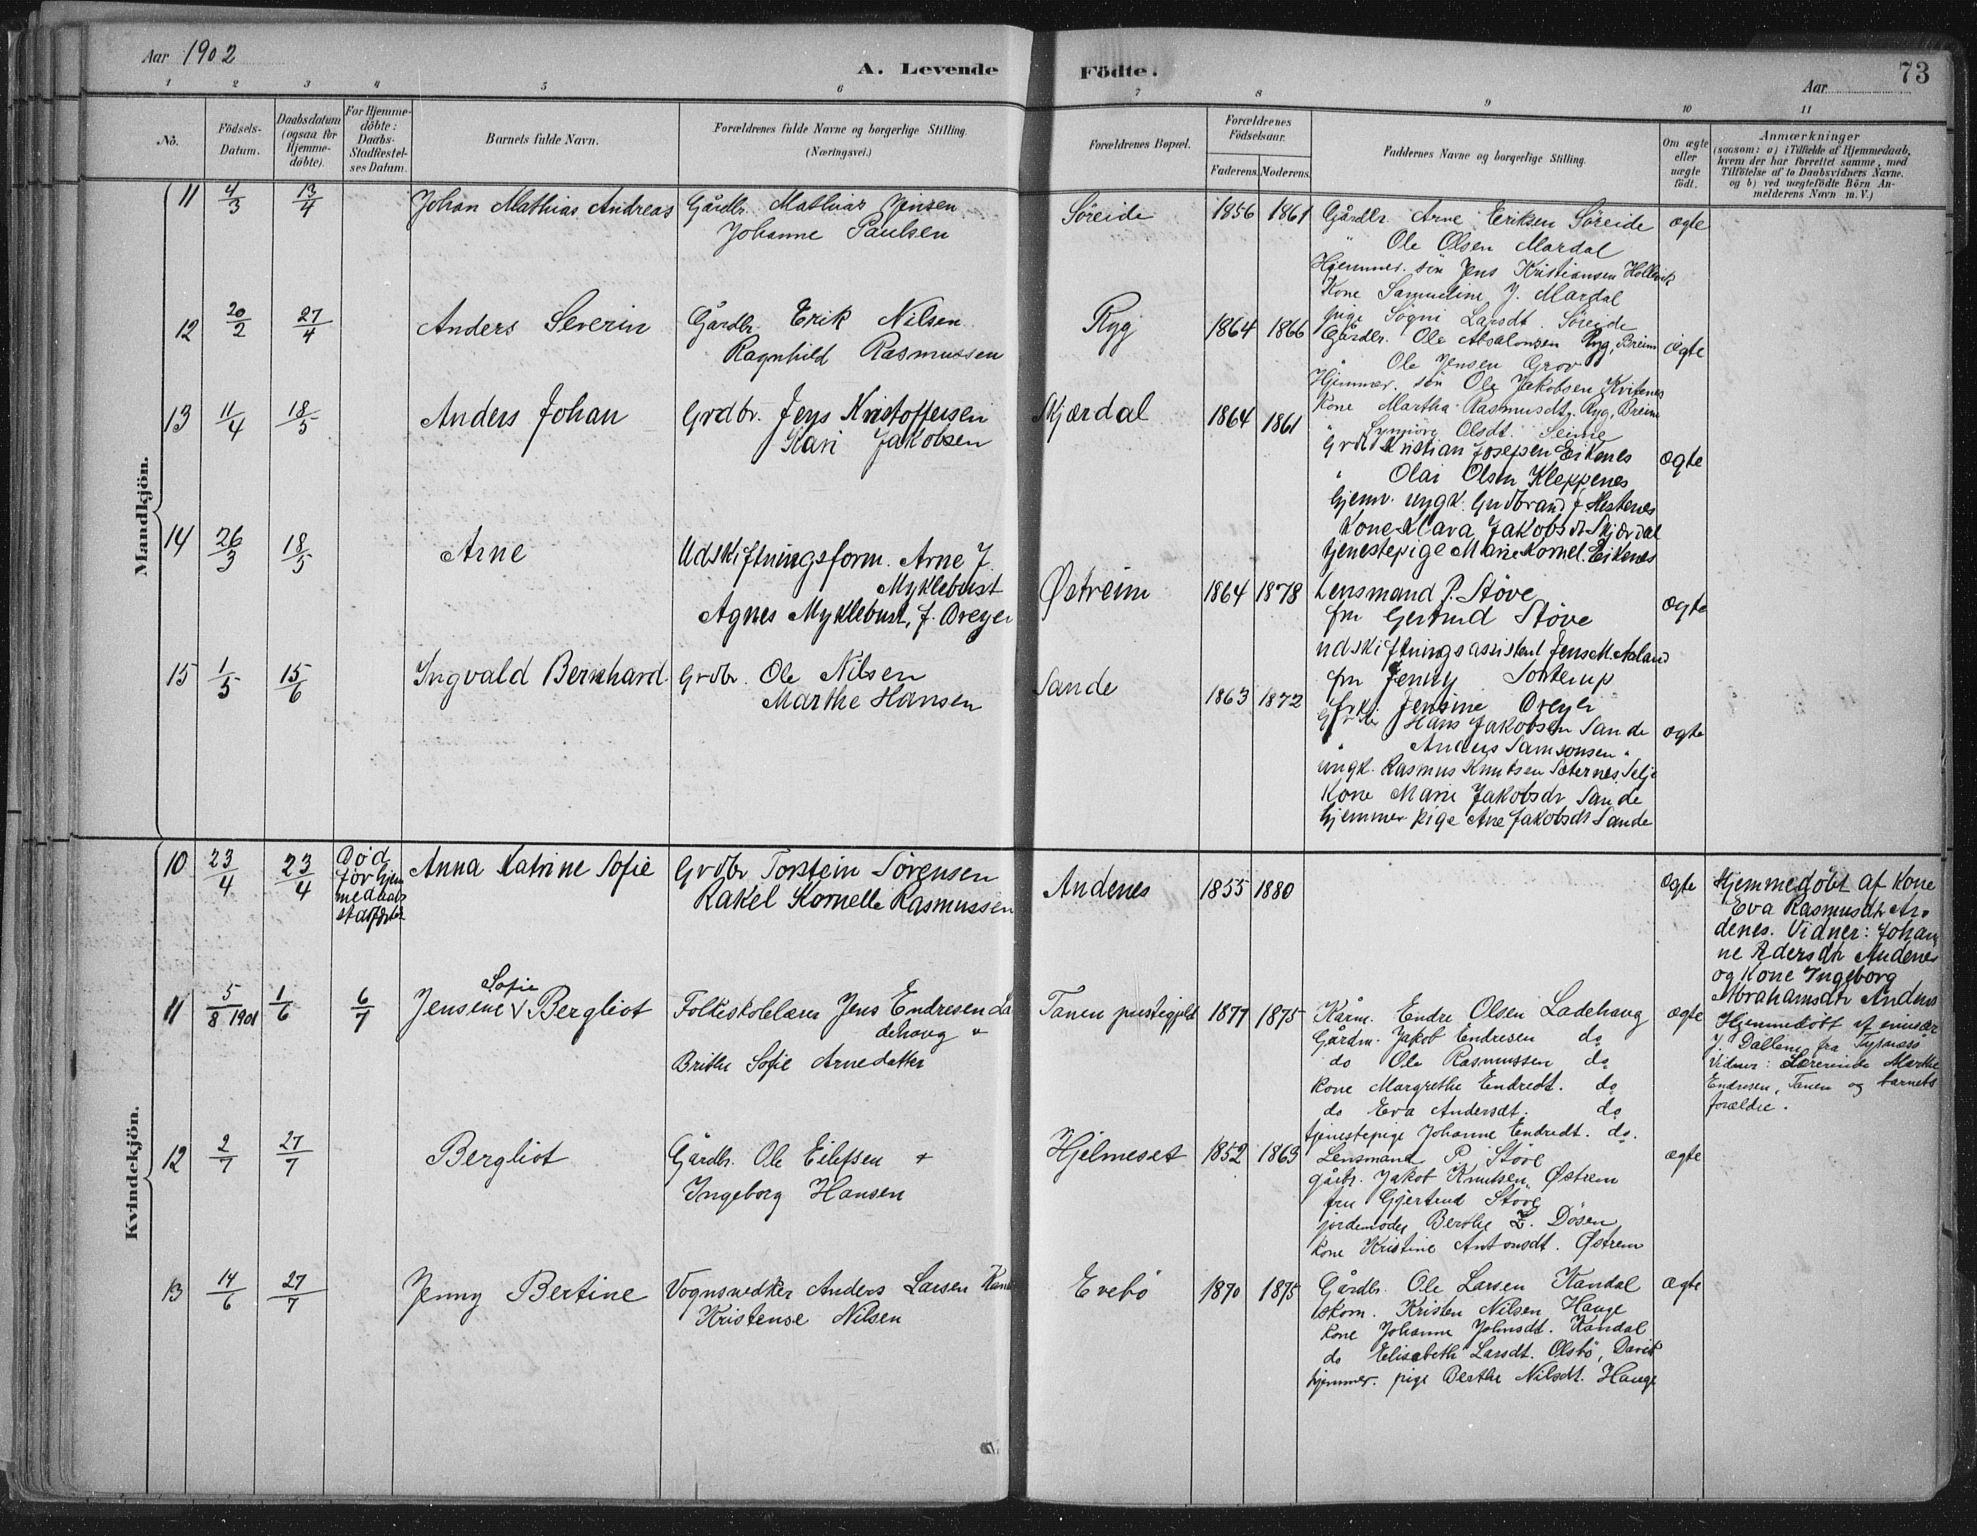 Aar 1902
A. Levende
Födte.
Aar
73
1 2 3 4 5 6 7 8 9 10 11
No.
Födsels-
Datum.
Daabsdatum
(ogsaa för
Hjemme-
döbte).
For Hjemme-
döbte:
Daabs-
Stadfæstel-
ses Datum.
Barnets fulde Navn.
Forældrenes fulde Navne og borgerlige Stilling.
(Næringsvei.)
Forældrenes Bopæl.
Forældrenes
Födselsaar.
Faderens.
Moderens.
Faddernes Navne og borgerlige Stilling.
Om ægte
eller
uægte
födt.
Anmærkninger
(saasom: a) i Tilfælde af Hjemmedaab,
hvem der har forrettet samme, med
Tilföielse af to Daabsvidners Navne.
og b) ved uægtefödte Börn An-
melderens Navn m. V.)
Mandkjön.
11 4/3 13/4 Johan Mathias Andreas
Gårdbr. Mathias Jensen
Johanne Paulsen
Søreide 1856 1861
Gårdbr. Arne Eriksen Søreide
" Ole Olsen Mardal
Hjemmev. søn Jens Kristiansen Hollevik
Kone Samueline J. Mardal
pige Sögni Larsdt. Søreide
ægte
12 20/2 27/4 Anders Severin
Gårdbr. Erik Nilsen
Ragnhild Rasmussen
Ryg 1864 1866
Gårdbr. Ole Absalonsen Ryg, Breim
" Ole Jensen Grov
Hjemmev. søn Ole Jakobsen Kvitenes
Kone Martha Rasmusdt. Ryg, Breim
" Olsdt. Seime
ægte
13 11/4 18/5 Anders Johan
Grdbr. Jens Kristoffersen
Kari Jakobsen
Skjærdal 1864 1861
Grdb Kristian Josefsen Eikenes
" Olai Olsen Kleppenes
hjemv. ungk. Gudbrand J. Hestenes
Kone Klara Jakobsdt Skjærdal
tjenestepige Marie Kornel. Eikenes
ægte
14 26/3 18/5 Arne
Udskiftningsform. Arne J.
Myklebust
Agnes Myklebust, f. Dreyer
Østreim 1864 1878
Lensmand P. Støve
fru Gertrud Støve
udskiftningsassistent Jens M. Aaland
fru Jenny
frk. Jensine Dreyer
ægte
15 1/5 15/6 Ingvald Bernhard
Grdbr. Ole Nilsen
Marthe Hansen
Sande 1863 1872
Grdbr Hans Jakobsen Sande
" Anders Samsonsen "
ungk. Rasmus Knutsen Sæternes, Selje
Kone Marie Jakobsdr Sande
hjemmev pige Ane Jakobsdt Sande
ægte
Kvindekjön.
10 23/4 23/4 Død
før hjem
medaabs
stadfæstet
Anna Katrine Sofie
Grdbr Torstein Sørensen
Rakel Kornelle Rasmussen
Andenes 1855 1880
ægte
Hjemmedøbt af Kone
Eva Rasmusdtr An-
denes. Vidner: Johan
ne Pedersdtr Andenes
og Kone Ingeborg
Abrahamsdtr Andenes
11 5/8 1901 1/6 6/7
Sofie
Jensine V Bergliot
Folkeskolelærer Jens Endresen La
dehaug +
Brithe Sofie Arnedatter
Tanen prestegjeld 1877 1875
Kårm. Endre Olsen Ladehaug
Gårdm. Jakob Endresen do
do Ole Rasmussen do
kone Margrethe Endredt. do
do Eva Andersdt. do
tjenestepige Johanne Endredt. do.
ægte
Hjemmedøbt af emissær
J. Dallene fra Tysnæs
Vidner: Lærerinde Marthe
Endresen, Tanen og barnets
forældre.
12 2/7 27/7 Bergliot
Gårdbr. Ole Eilefsen +
Ingeborg Hansen
Hjelmeset 1852 1863
Lensmand P. Støve
gårbr. Jakob Knutsen, Østrem
fru Gjertrud Støve
jordemoder Berthe L. Døsen
kone Kristine Antonsdt. Østrem
ægte
13 14/6 27/7 Jenny Bertine
Vognsvedker Anders Larsen
Kristense Nilsen
Evebø 1870 1875
Gårdbr. Ole Larsen Kandal
skom. Kristen Nilsen Hauge
kone Johanne Johnsdt. Kandal
do Elisabeth Larsdt. Olsbø, Davik
hjemmev. pige Berthe Nilsdt. Hauge
ægte